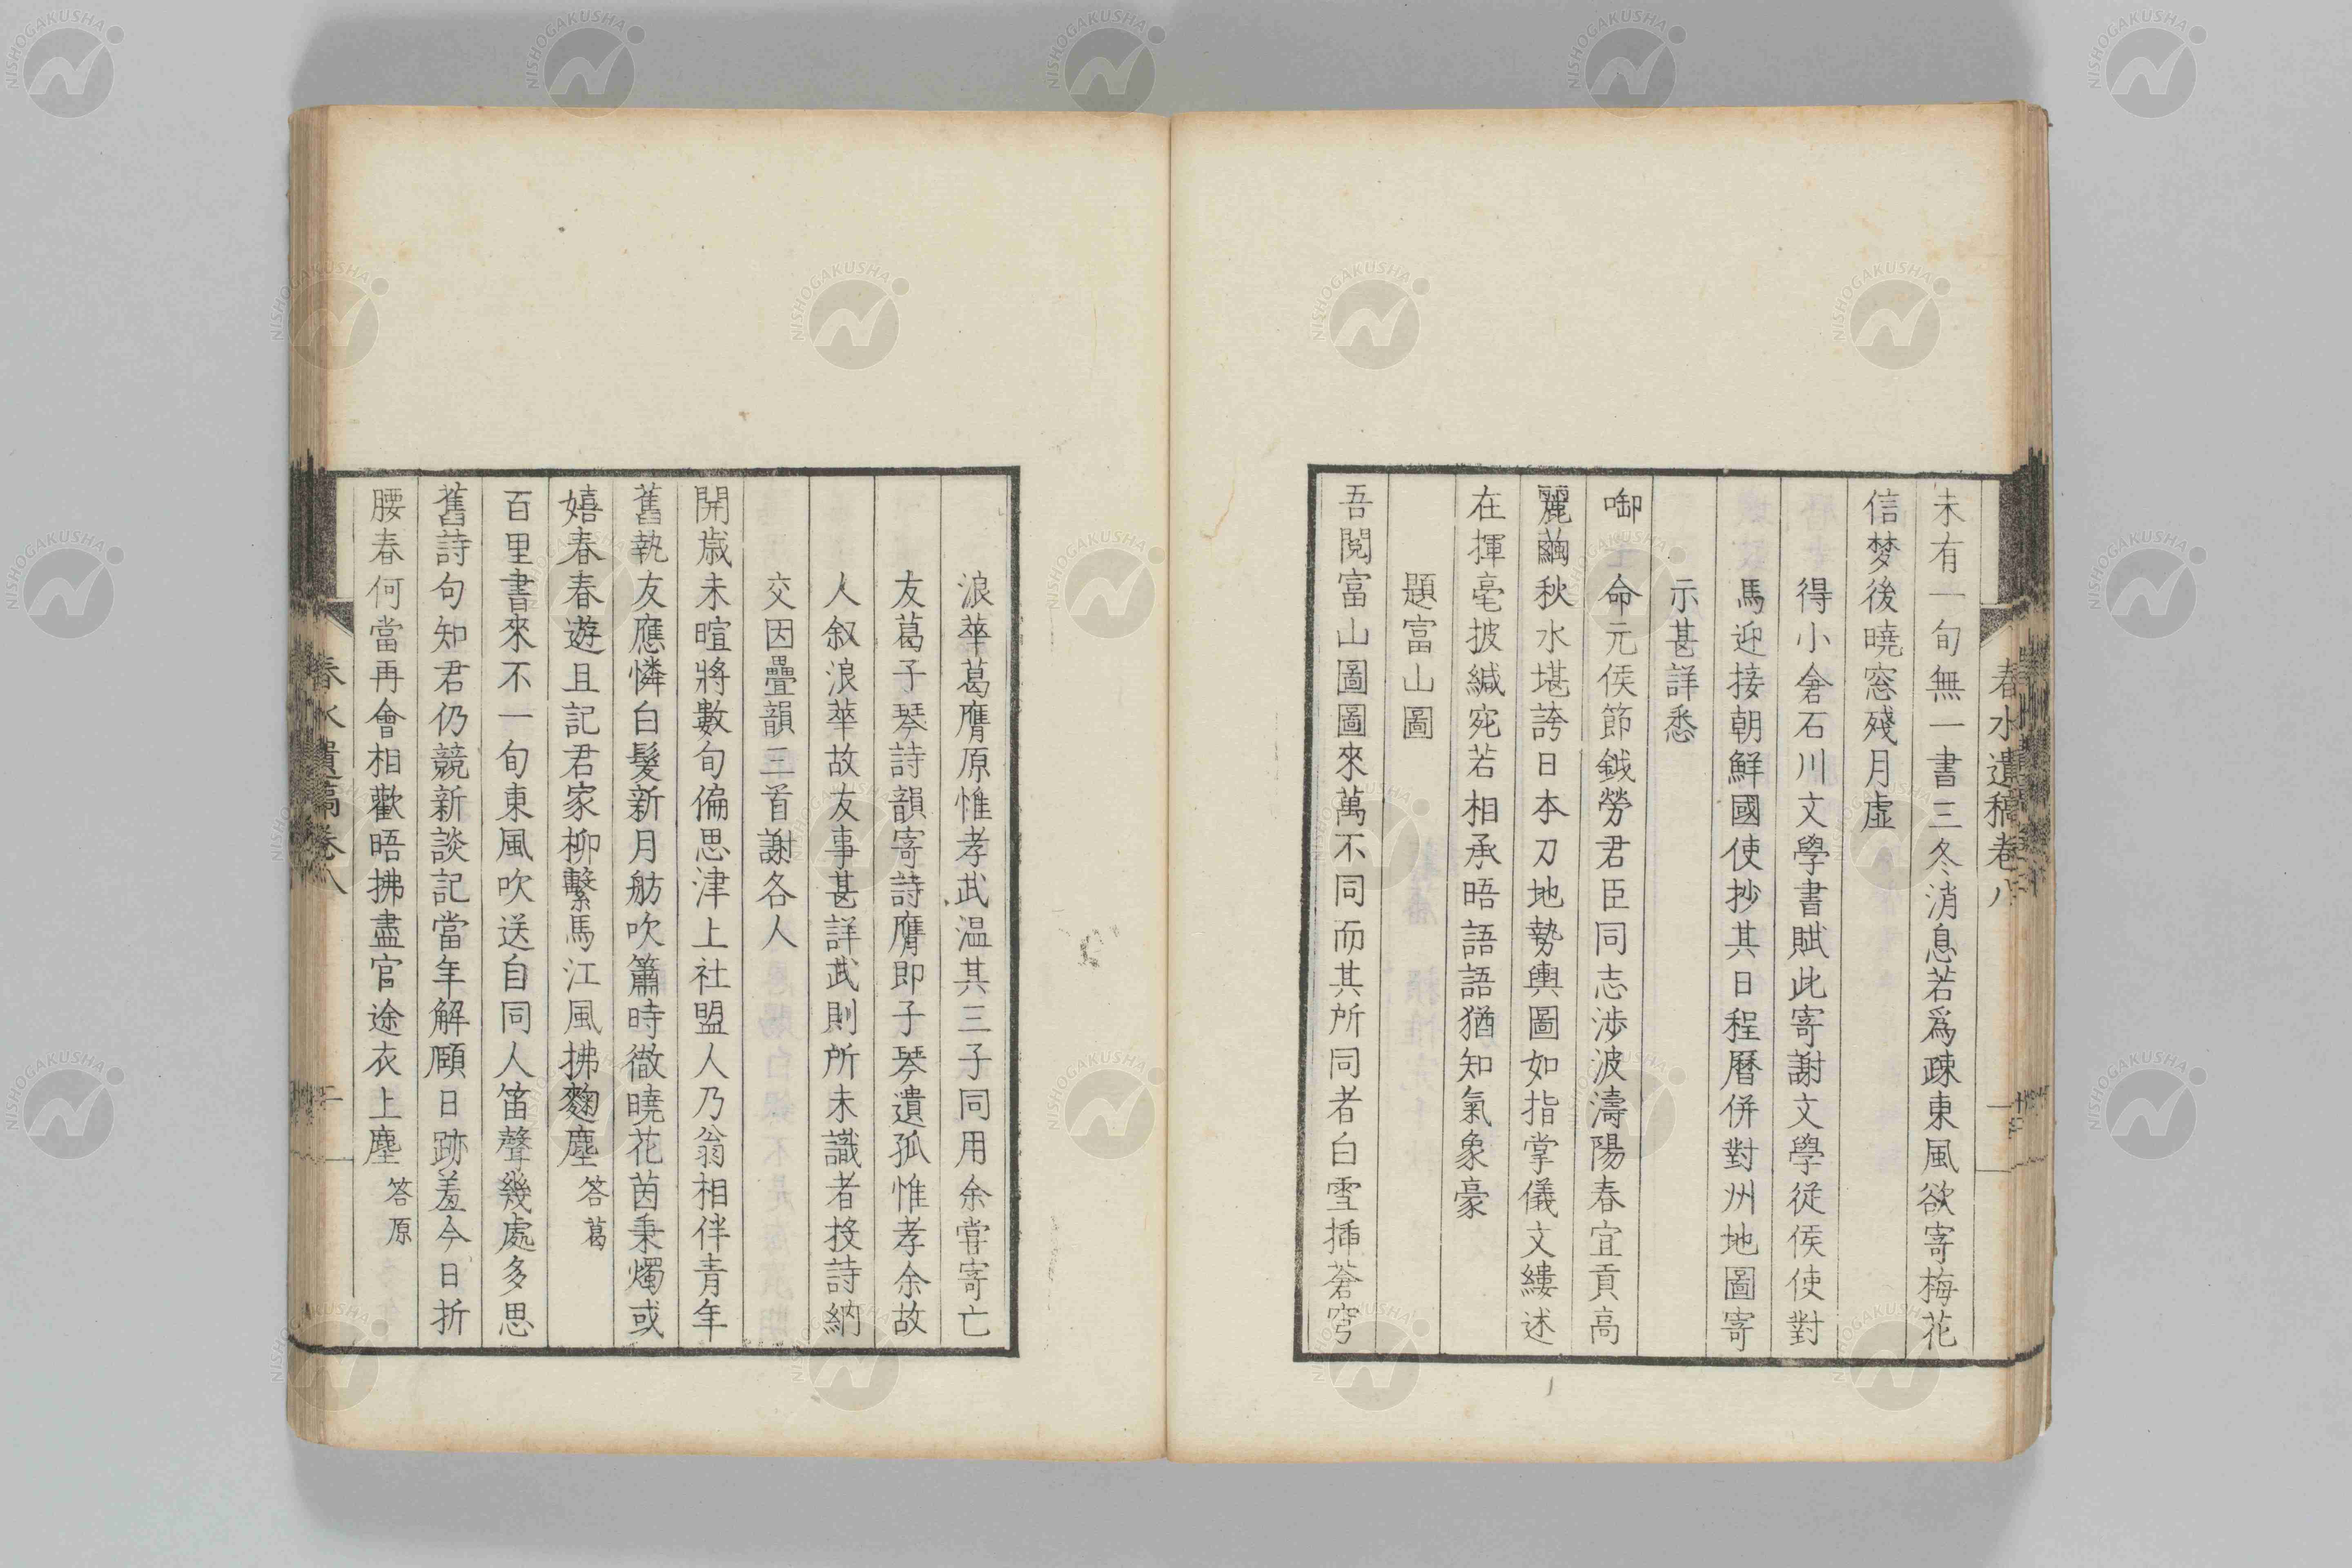 春水遺稿卷八
十四
未有一旬無一書三冬消息若爲疎東風欲寄梅花
信梦後曉窓殘月虛
得小倉石川文學書賦此寄謝文學從侯使對
馬迎接朝鮮國使抄其日程曆併對州地圖寄
示甚詳悉
啣命元侯節鉞勞君臣同志涉波濤陽春宜貢高
麗繭秋水堪誇日本刀地勢輿圖如指掌儀文縷述
在揮毫披緘宛若相承晤語語猶知氣象豪
題富山圖
吾閱富山圖圖來萬不同而其所同者白雪揷蒼穹
浪華葛膺原惟孝武温其三子同用余嘗寄亡
友葛子琴詩韻寄詩膺即子琴遺孤惟孝余故
人叙浪華故友事甚詳武則所未識者投詩納
交因疊韻三首謝各人
開歲未暄將數旬偏思津上社盟人乃翁相伴青年
舊執友應憐白髮新月舫吹簫時徹曉花茵秉燭或
嬉春春遊且記君家柳繫馬江風拂麴塵 答葛
百里書來不一旬東風吹送自同人笛聲幾處多思
舊詩句知君仍競新談記當年解頤日跡羞今日折
腰春何當再會相歡晤拂盡官途衣上塵 答原
春水遺稿卷八
NISHOGAKUSHA